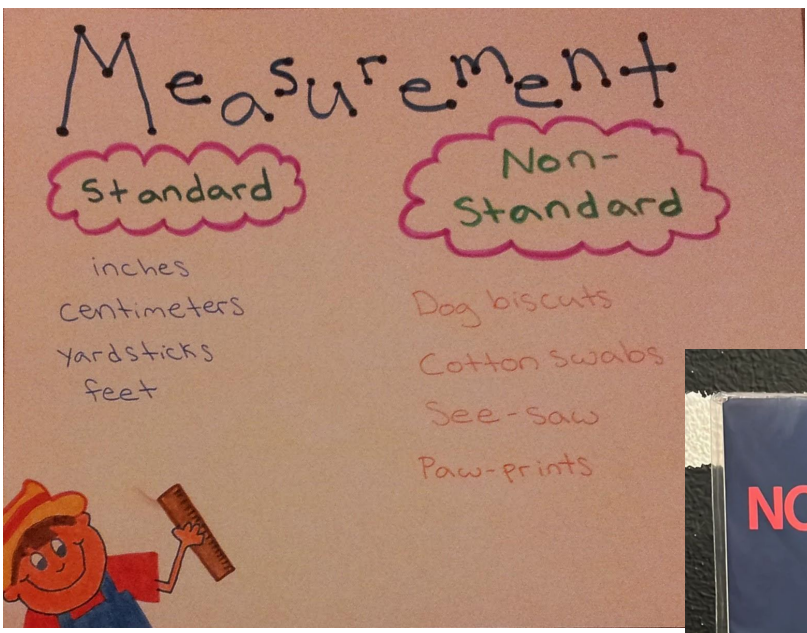 Measurement
Standard
inches
centimeters
yardsticks
feet
Non-
Standard
Dog biscuts
Cotton swabs
See-saw
Paw-prints
NO